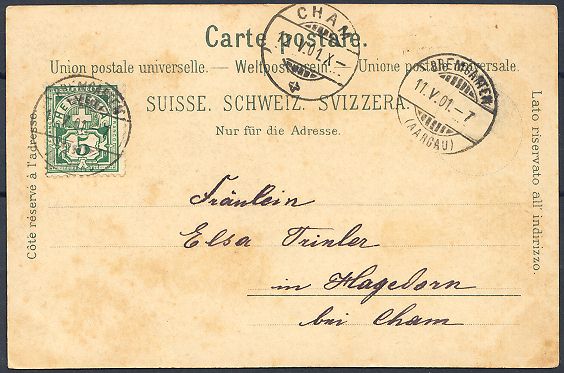 Carte postale.
Union postale universelle. — Weltpostverein. — Unione postale universale.
SUISSE. SCHWEIZ. SVIZZERA.
Nur für die Adresse.
Côte réservé à l'adresse.
Lato riservato all' indirizzo.
CHAM
11.V.01.X-
BREMGARTEN
11.V.01.-7
(AARGAU)
HELVETIA
5
Fräulein
Elsa Trinler
in Hagedorn
bei Cham